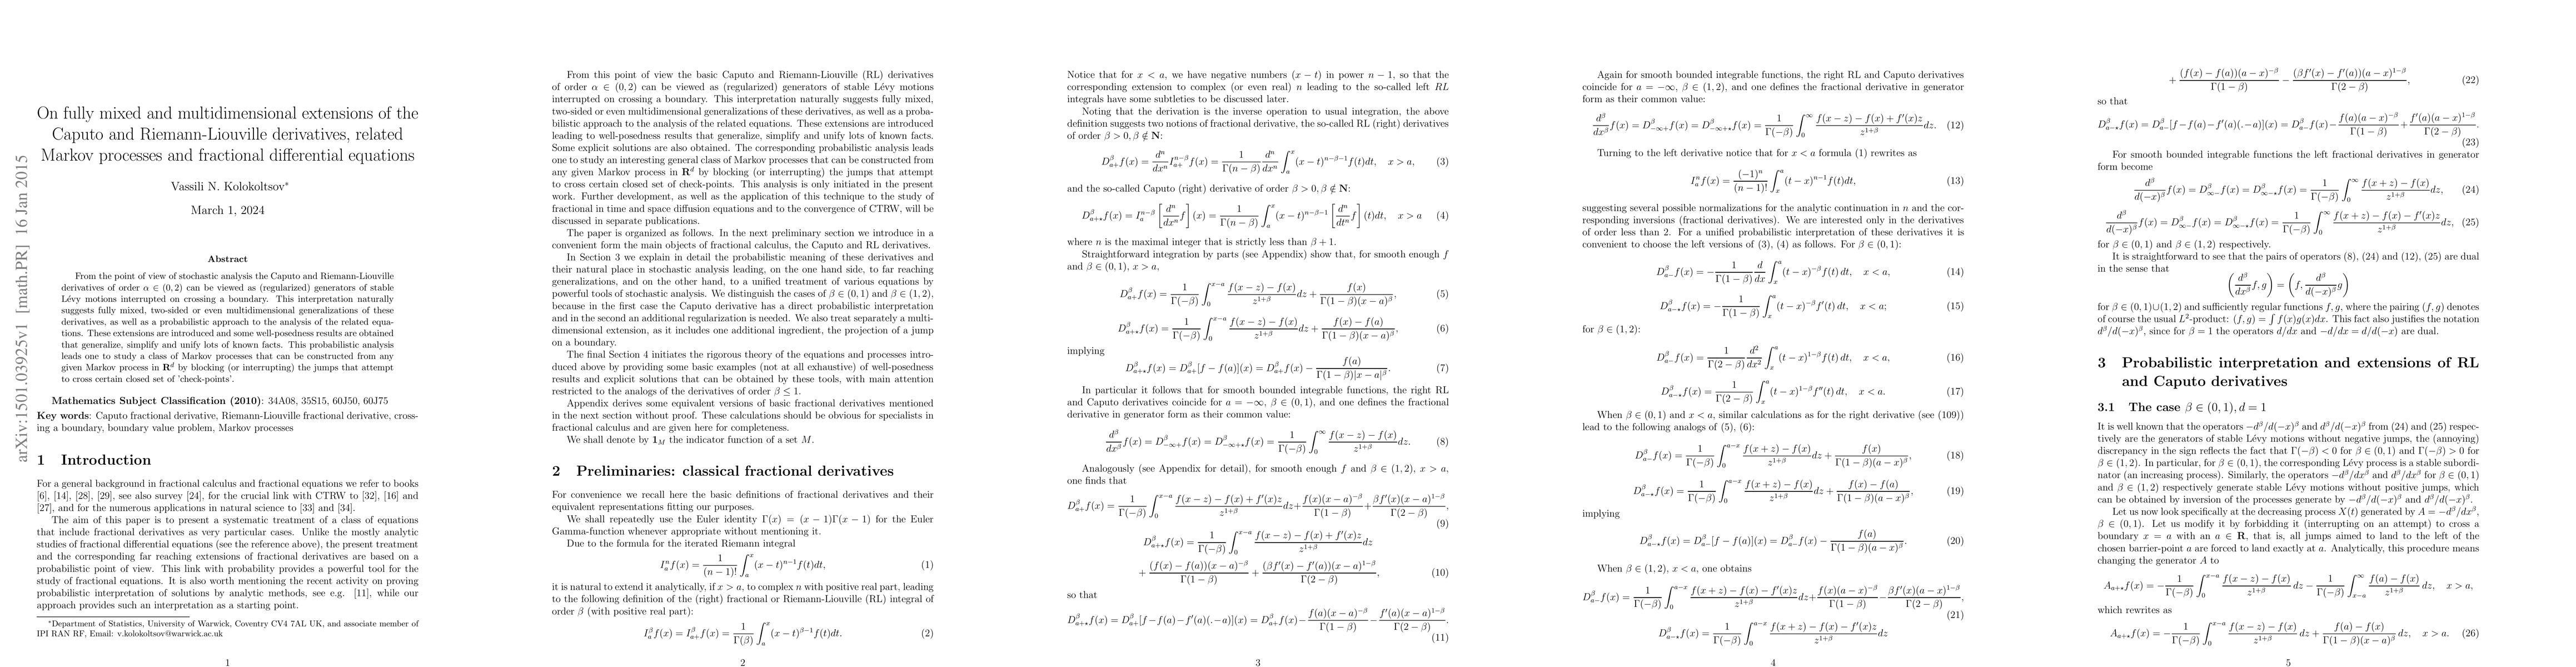 arXiv:1501.03925v1 [math.PR] 16 Jan 2015
On fully mixed and multidimensional extensions of the
Caputo and Riemann-Liouville derivatives, related
Markov processes and fractional differential equations
Vassili N. Kolokoltsov*
March 1, 2024
Abstract
From the point of view of stochastic analysis the Caputo and Riemann-Liouville
derivatives of order α ∈ (0, 2) can be viewed as (regularized) generators of stable
Lévy motions interrupted on crossing a boundary. This interpretation naturally
suggests fully mixed, two-sided or even multidimensional generalizations of these
derivatives, as well as a probabilistic approach to the analysis of the related equa-
tions. These extensions are introduced and some well-posedness results are obtained
that generalize, simplify and unify lots of known facts. This probabilistic analysis
leads one to study a class of Markov processes that can be constructed from any
given Markov process in R^d by blocking (or interrupting) the jumps that attempt
to cross certain closed set of 'check-points'.
Mathematics Subject Classification (2010): 34A08, 35S15, 60J50, 60J75
Key words: Caputo fractional derivative, Riemann-Liouville fractional derivative, cross-
ing a boundary, boundary value problem, Markov processes
1 Introduction
For a general background in fractional calculus and fractional equations we refer to books
[6], [14], [28], [29], see also survey [24], for the crucial link with CTRW to [32], [16] and
[27], and for the numerous applications in natural science to [33] and [34].
The aim of this paper is to present a systematic treatment of a class of equations
that include fractional derivatives as very particular cases. Unlike the mostly analytic
studies of fractional differential equations (see the reference above), the present treatment
and the corresponding far reaching extensions of fractional derivatives are based on a
probabilistic point of view. This link with probability provides a powerful tool for the
study of fractional equations. It is also worth mentioning the recent activity on proving
probabilistic interpretation of solutions by analytic methods, see e.g. [11], while our
approach provides such an interpretation as a starting point.
*Department of Statistics, University of Warwick, Coventry CV4 7AL UK, and associate member of
IPI RAN RF, Email: v.kolokoltsov@warwick.ac.uk
1
From this point of view the basic Caputo and Riemann-Liouville (RL) derivatives
of order α ∈ (0, 2) can be viewed as (regularized) generators of stable Lévy motions
interrupted on crossing a boundary. This interpretation naturally suggests fully mixed,
two-sided or even multidimensional generalizations of these derivatives, as well as a proba-
bilistic approach to the analysis of the related equations. These extensions are introduced
leading to well-posedness results that generalize, simplify and unify lots of known facts.
Some explicit solutions are also obtained. The corresponding probabilistic analysis leads
one to study an interesting general class of Markov processes that can be constructed from
any given Markov process in R^d by blocking (or interrupting) the jumps that attempt
to cross certain closed set of check-points. This analysis is only initiated in the present
work. Further development, as well as the application of this technique to the study of
fractional in time and space diffusion equations and to the convergence of CTRW, will be
discussed in separate publications.
The paper is organized as follows. In the next preliminary section we introduce in a
convenient form the main objects of fractional calculus, the Caputo and RL derivatives.
In Section 3 we explain in detail the probabilistic meaning of these derivatives and
their natural place in stochastic analysis leading, on the one hand side, to far reaching
generalizations, and on the other hand, to a unified treatment of various equations by
powerful tools of stochastic analysis. We distinguish the cases of β ∈ (0, 1) and β ∈ (1, 2),
because in the first case the Caputo derivative has a direct probabilistic interpretation
and in the second an additional regularization is needed. We also treat separately a multi-
dimensional extension, as it includes one additional ingredient, the projection of a jump
on a boundary.
The final Section 4 initiates the rigorous theory of the equations and processes intro-
duced above by providing some basic examples (not at all exhaustive) of well-posedness
results and explicit solutions that can be obtained by these tools, with main attention
restricted to the analogs of the derivatives of order β ≤ 1.
Appendix derives some equivalent versions of basic fractional derivatives mentioned
in the next section without proof. These calculations should be obvious for specialists in
fractional calculus and are given here for completeness.
We shall denote by 1_M the indicator function of a set M.
2 Preliminaries: classical fractional derivatives
For convenience we recall here the basic definitions of fractional derivatives and their
equivalent representations fitting our purposes.
We shall repeatedly use the Euler identity Γ(x) = (x − 1)Γ(x − 1) for the Euler
Gamma-function whenever appropriate without mentioning it.
Due to the formula for the iterated Riemann integral
I_a^n f(x) = \frac{1}{(n-1)!} \int_a^x (x-t)^{n-1} f(t)dt, (1)
it is natural to extend it analytically, if x > a, to complex n with positive real part, leading
to the following definition of the (right) fractional or Riemann-Liouville (RL) integral of
order β (with positive real part):
I_a^β f(x) = I_{a+}^β f(x) = \frac{1}{Γ(β)} \int_a^x (x-t)^{β-1} f(t)dt. (2)
2
Notice that for x < a, we have negative numbers (x − t) in power n − 1, so that the
corresponding extension to complex (or even real) n leading to the so-called left RL
integrals have some subtleties to be discussed later.
Noting that the derivation is the inverse operation to usual integration, the above
definition suggests two notions of fractional derivative, the so-called RL (right) derivatives
of order β > 0, β ∉ N:
D_{a+}^β f(x) = \frac{d^n}{dx^n} I_{a+}^{n-β} f(x) = \frac{1}{Γ(n-β)} \frac{d^n}{dx^n} \int_a^x (x-t)^{n-β-1} f(t)dt, x > a, (3)
and the so-called Caputo (right) derivative of order β > 0, β ∉ N:
D_{a+⋆}^β f(x) = I_a^{n-β} [\frac{d^n}{dx^n} f] (x) = \frac{1}{Γ(n-β)} \int_a^x (x-t)^{n-β-1} [\frac{d^n}{dt^n} f] (t)dt, x > a (4)
where n is the maximal integer that is strictly less than β + 1.
Straightforward integration by parts (see Appendix) show that, for smooth enough f
and β ∈ (0, 1), x > a,
D_{a+}^β f(x) = \frac{1}{Γ(-β)} \int_0^{x-a} \frac{f(x-z)-f(x)}{z^{1+β}} dz + \frac{f(x)}{Γ(1-β)(x-a)^β}, (5)
D_{a+⋆}^β f(x) = \frac{1}{Γ(-β)} \int_0^{x-a} \frac{f(x-z)-f(x)}{z^{1+β}} dz + \frac{f(x)-f(a)}{Γ(1-β)(x-a)^β}, (6)
implying
D_{a+⋆}^β f(x) = D_{a+}^β [f − f(a)](x) = D_{a+}^β f(x) − \frac{f(a)}{Γ(1-β)|x-a|^β}. (7)
In particular it follows that for smooth bounded integrable functions, the right RL
and Caputo derivatives coincide for a = −∞, β ∈ (0, 1), and one defines the fractional
derivative in generator form as their common value:
\frac{d^β}{dx^β} f(x) = D_{-∞+}^β f(x) = D_{-∞+⋆}^β f(x) = \frac{1}{Γ(-β)} \int_0^∞ \frac{f(x-z)-f(x)}{z^{1+β}} dz. (8)
Analogously (see Appendix for detail), for smooth enough f and β ∈ (1, 2), x > a,
one finds that
D_{a+}^β f(x) = \frac{1}{Γ(-β)} \int_0^{x-a} \frac{f(x-z)-f(x)+f'(x)z}{z^{1+β}} dz + \frac{f(x)(x-a)^{-β}}{Γ(1-β)} + \frac{βf'(x)(x-a)^{1-β}}{Γ(2-β)},
(9)
D_{a+⋆}^β f(x) = \frac{1}{Γ(-β)} \int_0^{x-a} \frac{f(x-z)-f(x)+f'(x)z}{z^{1+β}} dz
+ \frac{(f(x)-f(a))(x-a)^{-β}}{Γ(1-β)} + \frac{(βf'(x)-f'(a))(x-a)^{1-β}}{Γ(2-β)}, (10)
so that
D_{a+⋆}^β f(x) = D_{a+}^β [f−f(a)−f'(a)(.−a)](x) = D_{a+}^β f(x) − \frac{f(a)(x-a)^{-β}}{Γ(1-β)} − \frac{f'(a)(x-a)^{1-β}}{Γ(2-β)}.
(11)
3
Again for smooth bounded integrable functions, the right RL and Caputo derivatives
coincide for a = −∞, β ∈ (1, 2), and one defines the fractional derivative in generator
form as their common value:
\frac{d^β}{dx^β} f(x) = D_{-∞+}^β f(x) = D_{-∞+⋆}^β f(x) = \frac{1}{Γ(-β)} \int_0^∞ \frac{f(x-z)-f(x)+f'(x)z}{z^{1+β}} dz. (12)
Turning to the left derivative notice that for x < a formula (1) rewrites as
I_a^n f(x) = \frac{(-1)^n}{(n-1)!} \int_x^a (t-x)^{n-1} f(t)dt, (13)
suggesting several possible normalizations for the analytic continuation in n and the cor-
responding inversions (fractional derivatives). We are interested only in the derivatives
of order less than 2. For a unified probabilistic interpretation of these derivatives it is
convenient to choose the left versions of (3), (4) as follows. For β ∈ (0, 1):
D_{a-}^β f(x) = −\frac{1}{Γ(1-β)} \frac{d}{dx} \int_x^a (t-x)^{-β} f(t) dt, x < a, (14)
D_{a-⋆}^β f(x) = −\frac{1}{Γ(1-β)} \int_x^a (t-x)^{-β} f'(t) dt, x < a; (15)
for β ∈ (1, 2):
D_{a-}^β f(x) = \frac{1}{Γ(2-β)} \frac{d^2}{dx^2} \int_x^a (t-x)^{1-β} f(t) dt, x < a, (16)
D_{a-⋆}^β f(x) = \frac{1}{Γ(2-β)} \int_x^a (t-x)^{1-β} f''(t) dt, x < a. (17)
When β ∈ (0, 1) and x < a, similar calculations as for the right derivative (see (109))
lead to the following analogs of (5), (6):
D_{a-}^β f(x) = \frac{1}{Γ(-β)} \int_0^{a-x} \frac{f(x+z)-f(x)}{z^{1+β}} dz + \frac{f(x)}{Γ(1-β)(a-x)^β}, (18)
D_{a-⋆}^β f(x) = \frac{1}{Γ(-β)} \int_0^{a-x} \frac{f(x+z)-f(x)}{z^{1+β}} dz + \frac{f(x)-f(a)}{Γ(1-β)(a-x)^β}, (19)
implying
D_{a-⋆}^β f(x) = D_{a-}^β [f − f(a)](x) = D_{a-}^β f(x) − \frac{f(a)}{Γ(1-β)(a-x)^β}. (20)
When β ∈ (1, 2), x < a, one obtains
D_{a-}^β f(x) = \frac{1}{Γ(-β)} \int_0^{a-x} \frac{f(x+z)-f(x)-f'(x)z}{z^{1+β}} dz + \frac{f(x)(a-x)^{-β}}{Γ(1-β)} − \frac{βf'(x)(a-x)^{1-β}}{Γ(2-β)},
(21)
D_{a-⋆}^β f(x) = \frac{1}{Γ(-β)} \int_0^{a-x} \frac{f(x+z)-f(x)-f'(x)z}{z^{1+β}} dz
4
+ \frac{(f(x)-f(a))(a-x)^{-β}}{Γ(1-β)} − \frac{(βf'(x)-f'(a))(a-x)^{1-β}}{Γ(2-β)}, (22)
so that
D_{a-⋆}^β f(x) = D_{a-}^β [f−f(a)−f'(a)(.−a)](x) = D_{a-}^β f(x) − \frac{f(a)(a-x)^{-β}}{Γ(1-β)} + \frac{f'(a)(a-x)^{1-β}}{Γ(2-β)}.
(23)
For smooth bounded integrable functions the left fractional derivatives in generator
form become
\frac{d^β}{d(-x)^β} f(x) = D_{∞-}^β f(x) = D_{∞-⋆}^β f(x) = \frac{1}{Γ(-β)} \int_0^∞ \frac{f(x+z)-f(x)}{z^{1+β}} dz, (24)
\frac{d^β}{d(-x)^β} f(x) = D_{∞-}^β f(x) = D_{∞-⋆}^β f(x) = \frac{1}{Γ(-β)} \int_0^∞ \frac{f(x+z)-f(x)-f'(x)z}{z^{1+β}} dz, (25)
for β ∈ (0, 1) and β ∈ (1, 2) respectively.
It is straightforward to see that the pairs of operators (8), (24) and (12), (25) are dual
in the sense that
(\frac{d^β}{dx^β} f, g) = (f, \frac{d^β}{d(-x)^β} g)
for β ∈ (0, 1)∪(1, 2) and sufficiently regular functions f, g, where the pairing (f, g) denotes
of course the usual L²-product: (f, g) = ∫ f(x)g(x)dx. This fact also justifies the notation
d^β/d(−x)^β, since for β = 1 the operators d/dx and −d/dx = d/d(−x) are dual.
3 Probabilistic interpretation and extensions of RL
and Caputo derivatives
3.1 The case β ∈ (0, 1), d = 1
It is well known that the operators −d^β/d(−x)^β and d^β/d(−x)^β from (24) and (25) respec-
tively are the generators of stable Lévy motions without negative jumps, the (annoying)
discrepancy in the sign reflects the fact that Γ(−β) < 0 for β ∈ (0, 1) and Γ(−β) > 0 for
β ∈ (1, 2). In particular, for β ∈ (0, 1), the corresponding Lévy process is a stable subordi-
nator (an increasing process). Similarly, the operators −d^β/dx^β and d^β/dx^β for β ∈ (0, 1)
and β ∈ (1, 2) respectively generate stable Lévy motions without positive jumps, which
can be obtained by inversion of the processes generate by −d^β/d(−x)^β and d^β/d(−x)^β.
Let us now look specifically at the decreasing process X(t) generated by A = −d^β/dx^β,
β ∈ (0, 1). Let us modify it by forbidding it (interrupting on an attempt) to cross a
boundary x = a with an a ∈ R, that is, all jumps aimed to land to the left of the
chosen barrier-point a are forced to land exactly at a. Analytically, this procedure means
changing the generator A to
A_{a+⋆} f(x) = −\frac{1}{Γ(-β)} \int_0^{x-a} \frac{f(x-z)-f(x)}{z^{1+β}} dz − \frac{1}{Γ(-β)} \int_{x-a}^∞ \frac{f(a)-f(x)}{z^{1+β}} dz, x > a,
which rewrites as
A_{a+⋆} f(x) = −\frac{1}{Γ(-β)} \int_0^{x-a} \frac{f(x-z)-f(x)}{z^{1+β}} dz + \frac{f(a)-f(x)}{Γ(1-β)(x-a)^β} dz, x > a. (26)
5